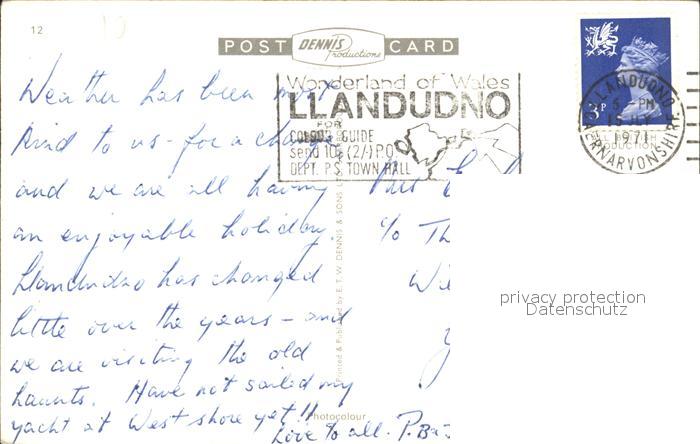 12
POST DENNIS Productions CARD
Wonderland of Wales
LLANDUDNO
FOR
COLOUR GUIDE
send 10p (2/-) P.O.
DEPT. P.S. TOWN HALL
3P
LLANDUDNO
6 - PM
15 JLY
1971
CAERNARVONSHIRE
Weather has been more
kind to us - for a change
and we are all having
an enjoyable holiday.
Llandudno has changed
little over the years - and
we are visiting the old
haunts. Have not sailed my
yacht at West shore yet!!
Love to all. P.
c/o Th
Wi
Printed & Published by E. T. W. DENNIS & SONS
Photocolour
privacy protection
Datenschutz